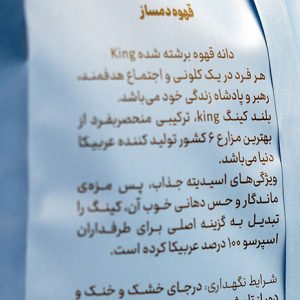 قهوه دمساز
دانه قهوه برشته شده King
هر فرد در یک کلونی و اجتماع هدفمند،
رهبر و پادشاه زندگی خود می‌باشد.
بلند کینگ king، ترکیبی منحصربفرد از
بهترین مزارع ۶ کشور تولید کننده عربیکا
دنیا می‌باشد.
ویژگی‌های اسیدیته جذاب، پس مزه‌ی
ماندگار و حس دهانی خوب آن، کینگ را
تبدیل به گزینه اصلی برای طرفداران
اسپرسو ۱۰۰ درصد عربیکا کرده است.
شرایط نگهداری: درجای خشک و خنک و